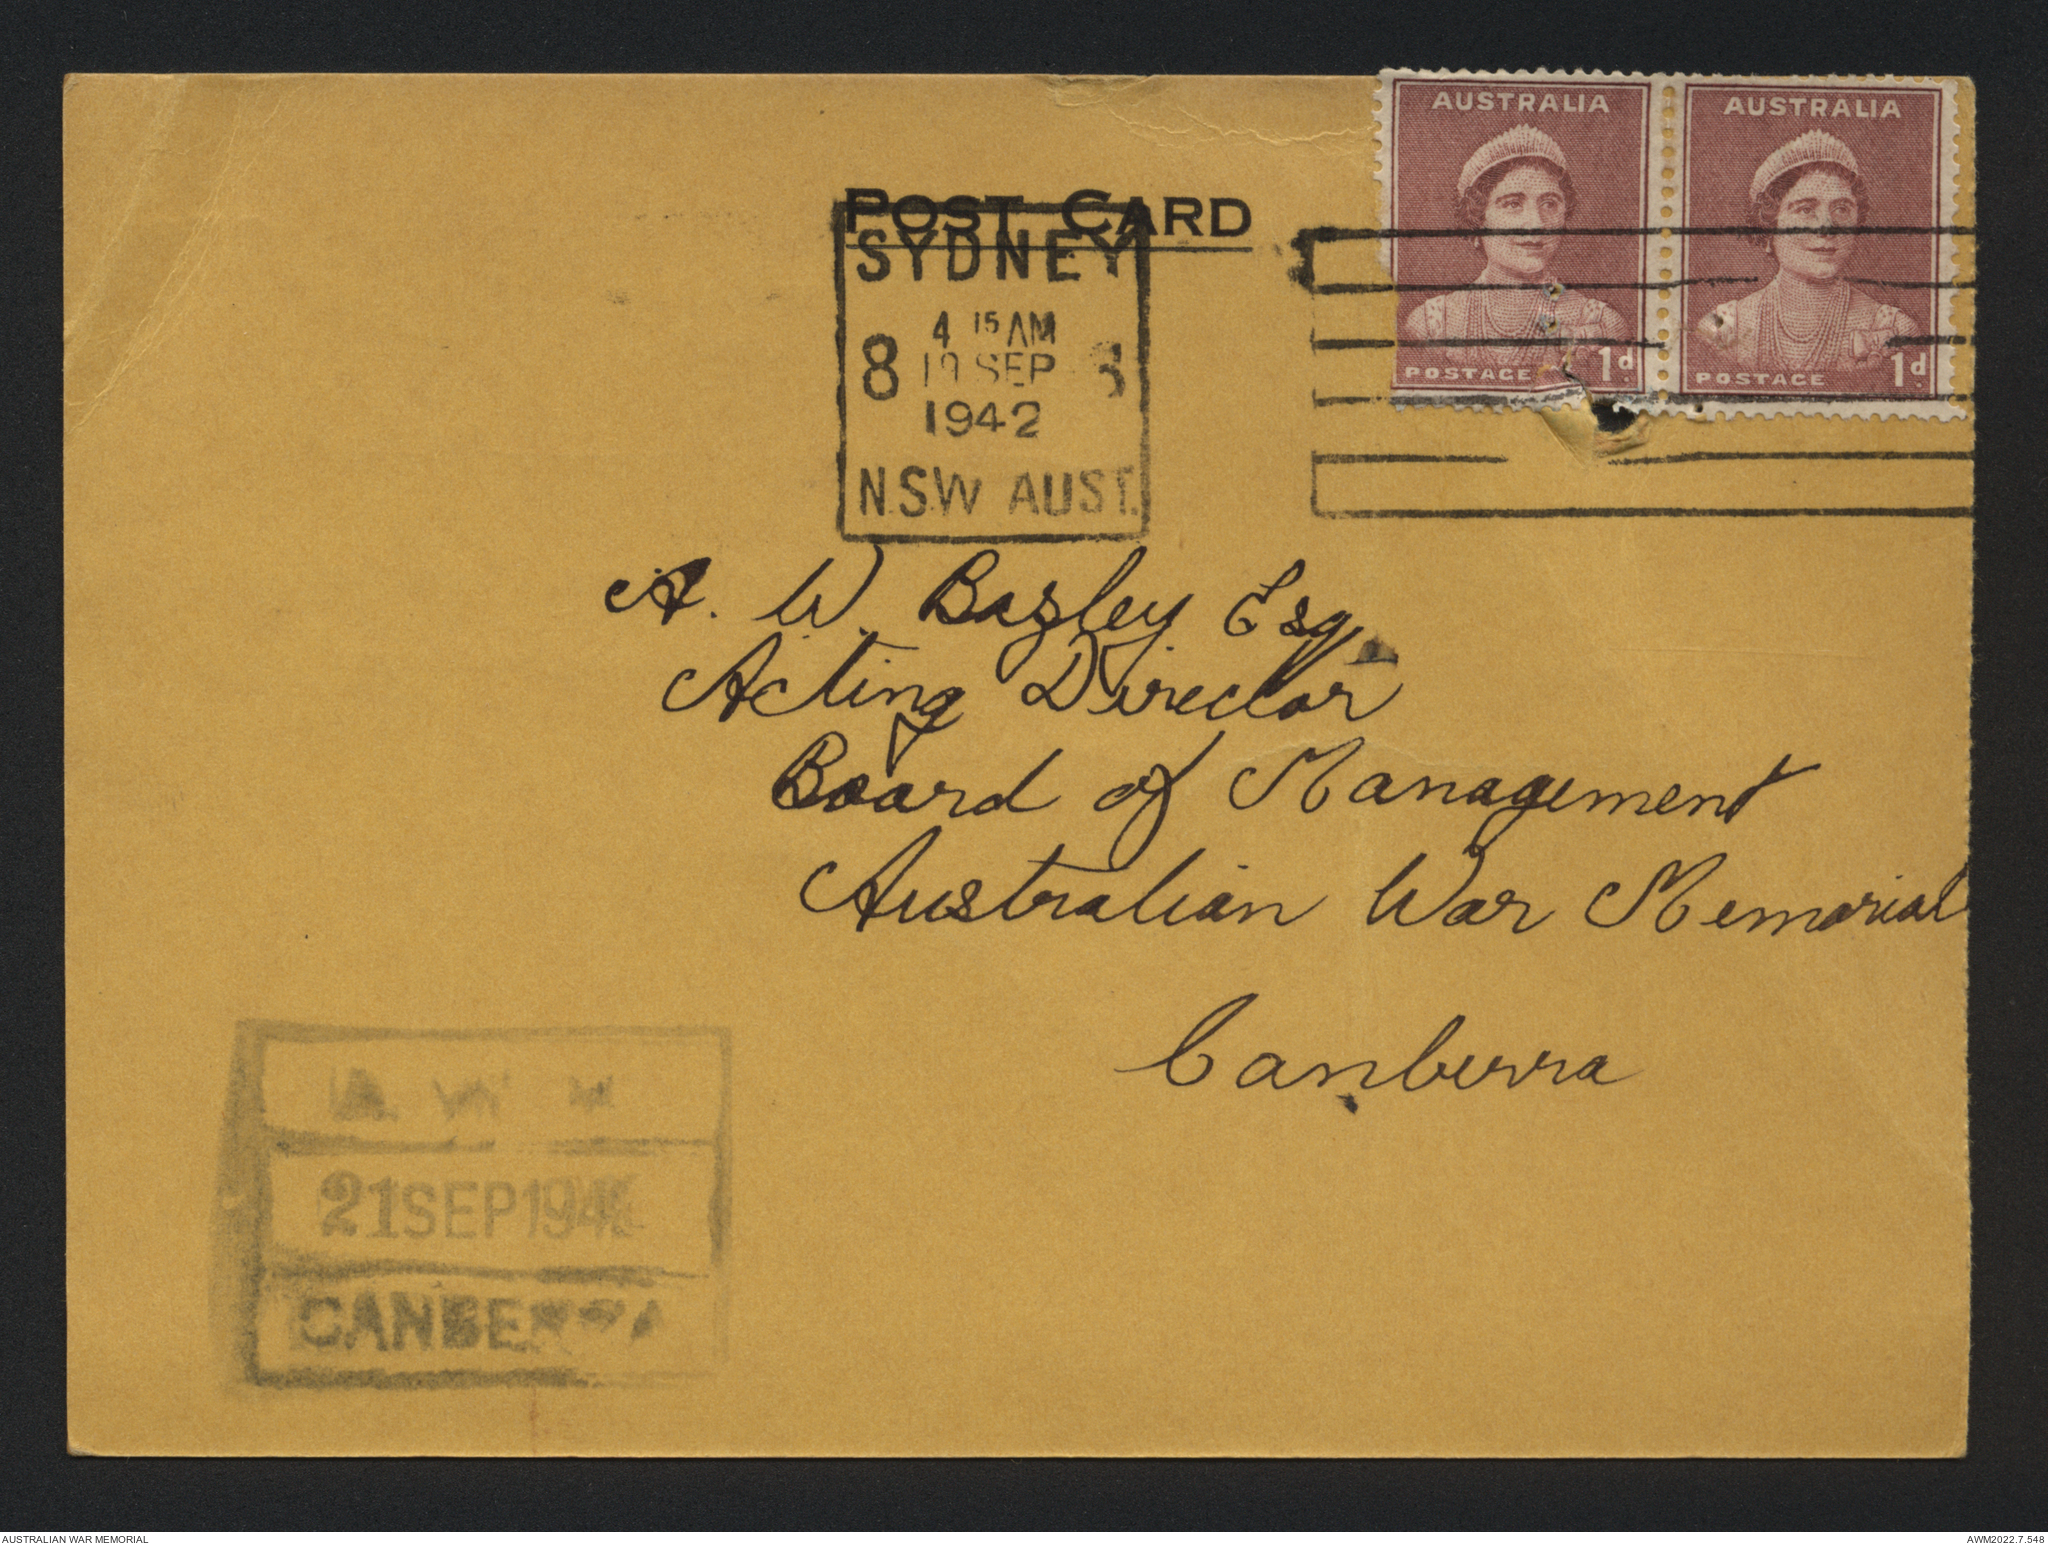 AUSTRALIA
AUSTRALIA
POST CARD
SYDNEY
4 15 AM
8 19 SEP
1942
N.S.W AUST.
POSTAGE 1d.
POSTAGE 1d.
A. W. Bazley Esq.
Acting Director
Board of Management
Australian War Memorial
Canberra
21 SEP 194
CANBERRA
AUSTRALIAN WAR MEMORIAL
AWM2022.7.548